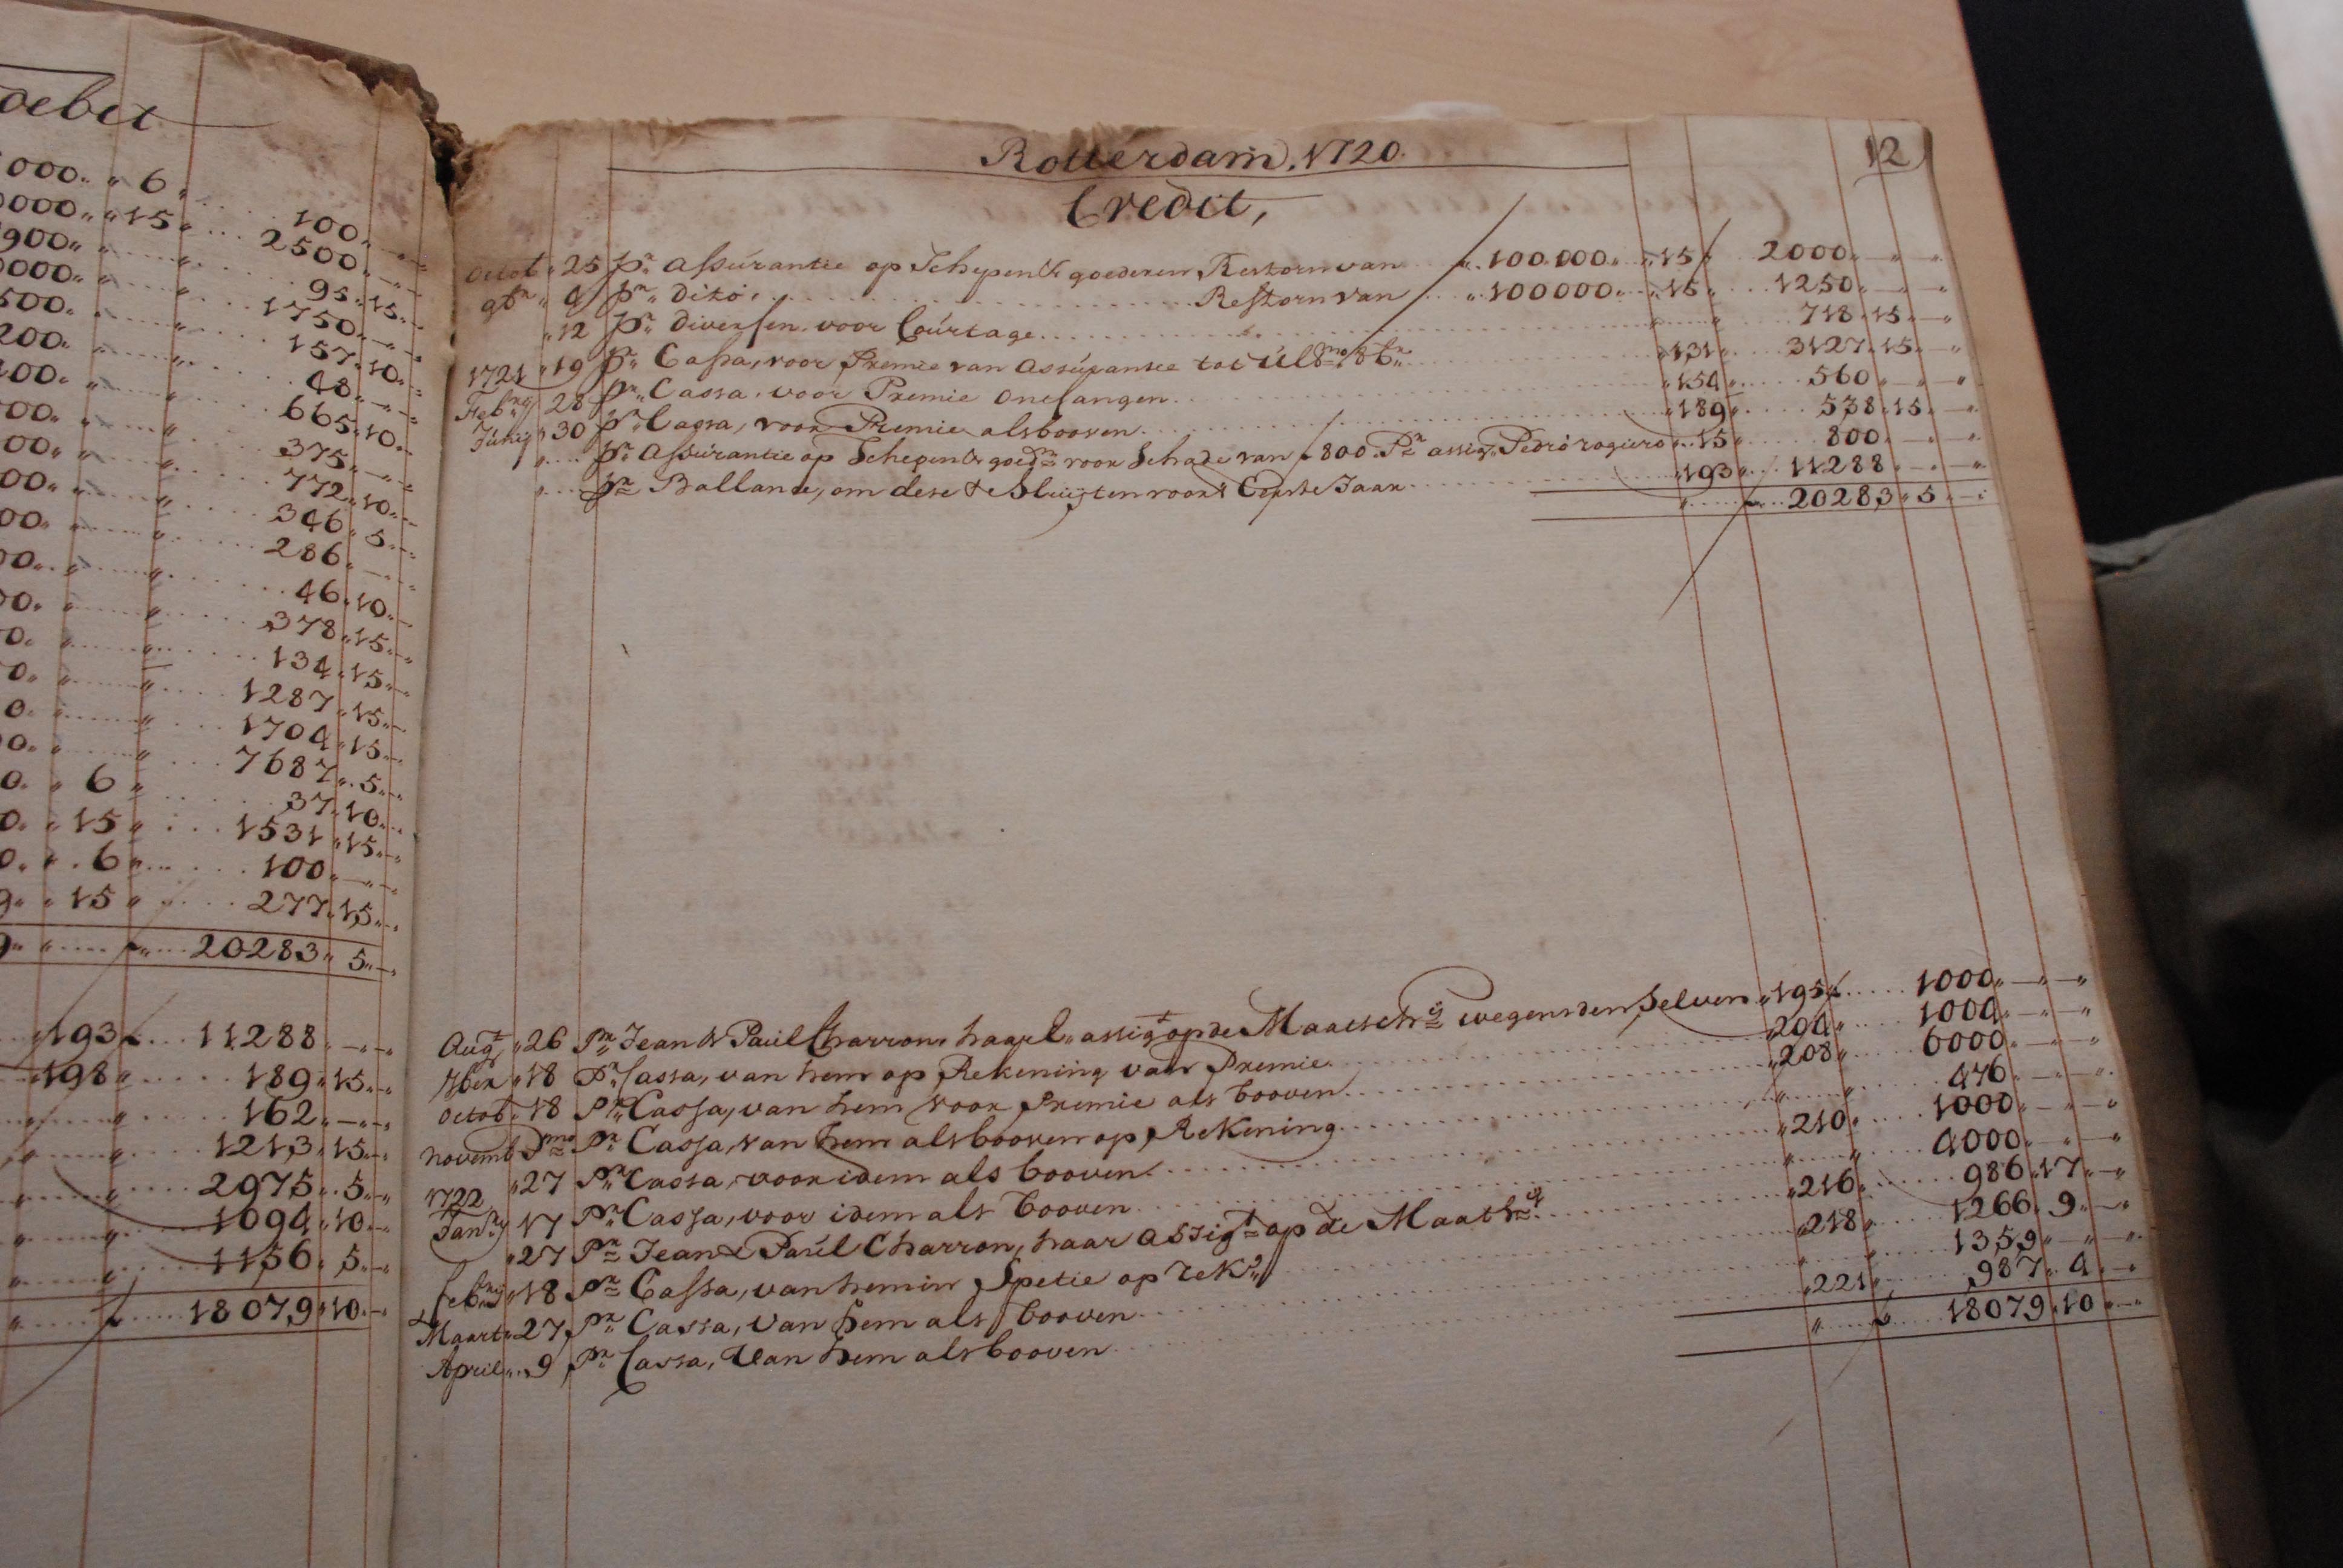 debet
000 „ „ 6 „ 100 „ — „ —
000 „ „ 15 „ 2500 „ — „ —
900 „ „ 95 „ 15 „ —
000 „ „ 1750 „ — „ —
500 „ „ 157 „ 10 „ —
200 „ „ 48 „ — „ —
400 „ „ 665 „ 10 „ —
00 „ „ 375 „ — „ —
00 „ „ 772 „ 10 „ —
00 „ „ 346 „ 5 „ —
00 „ „ 286 „ — „ —
00 „ „ 46 „ 10 „ —
00 „ „ 378 „ 15 „ —
0 „ „ 134 „ 15 „ —
0 „ „ 1287 „ 15 „ —
0 „ „ 1704 „ 15 „ —
0 „ „ 7687 „ 5 „ —
0 „ „ 6 „ 37 „ 10 „ —
0 „ „ 15 „ 1531 „ 15 „ —
0 „ „ 6 „ 100 „ — „ —
„ 15 „ 277 „ 15 „ —
„ „ 20283 „ 5 „ —
„ 193 „ 11288 „ — „ —
„ 198 „ 189 „ 15 „ —
„ „ 162 „ — „ —
„ „ 1213 „ 15 „ —
„ „ 2975 „ 5 „ —
„ „ 1094 „ 10 „ —
„ „ 1156 „ 5 „ —
„ „ 18079 „ 10 „ —
Rotterdam. 1720. 12
Credit,
Octob „ 25 pr Assurantie op Schepen & goederen Restorn van „ 100.000 „ „ 15 „ 2000 „ — „ —
9br „ 9 pr dito, Restorn van „ 100000 „ „ 15 „ 1250 „ — „ —
„ 12 pr diversen voor Courtage „ „ 718 „ 15 „ —
„ 19 pr Cassa, voor Premie van assurantie tot Ulto 8br „ 131 „ 3127 „ 15 „ —
1721
Febry 28 pr Cassa voor Premie onefangen „ 154 „ 560 „ — „ —
Junij „ 30 pr Cassa, voor Premie als booven „ 189 „ 538 „ 15 „ —
„ pr Assurantie op Schepen & goedn voor Schade van 800. Pr assig. Pedro rogiero „ 15 „ 800 „ — „ —
„ pr Ballance, om dese te Sluijten voor't Eerste Jaar „ 193 „ 11288 „ — „ —
„ „ 20283 „ 5 „ —
Augt „ 26 Pr Jean & Paul Charron, haar assigt op de Maatschij wegens den Selven „ 195 „ 1000 „ — „ —
7ber „ 18 Pr Cassa, van hem op Rekening van Premie „ 204 „ 1004 „ — „ —
Octob „ 18 Pr Cassa, van hem voor Premie als booven „ 208 „ 6000 „ — „ —
Novemb Pmo Pr Cassa, van hem als booven op Rekening „ „ 476 „ — „ —
„ 27 Pr Cassa, voor idem als booven „ 210 „ 1000 „ — „ —
1722
Janry 17 Pr Cassa, voor idem als booven „ „ 4000 „ — „ —
„ 27 Pr Jean & Paul Charron, haar Assigt op de Maatschij „ 216 „ 986 „ 17 „ —
Febry „ 18 Pr Cassa, van hem in Spetie op rekg „ 218 „ 1266 „ 9 „ —
Maart „ 27 Pr Cassa, van hem als booven „ „ 1359 „ — „ —
April „ 9 Pr Cassa, Van hem als booven „ 221 „ 987 „ 4 „ —
„ „ 18079 „ 10 „ —